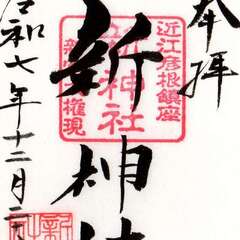 奉拝
近江彦根鎮座
新神社
権現
新神社
令和七年十二月二
新